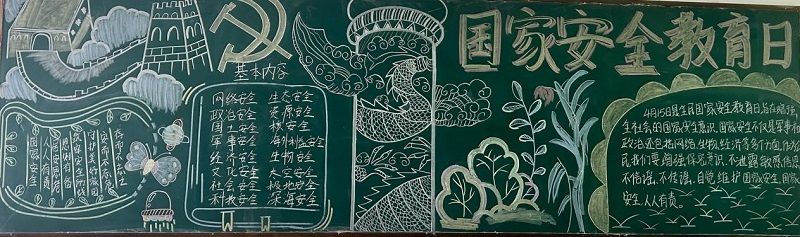 国家安全教育日
基本内容
网络安全 生态安全
政治安全 资源安全
国土安全 核安全
军事安全 海外利益安全
经济安全 生物安全
文化安全 太空安全
社会安全 极地安全
科技安全 深海安全
存而不忘亡
安而不忘危
守护美好家园
国家安全
人人有责
4月15日是全民国家安全教育日,旨在增强
全社会的国家安全意识。国家安全不仅是军事和
政治,还包括网络、生物、经济等多个方面,作为公
民我们要增强保密意识,不泄露敏感信息
不信谣,不传谣,自觉维护国家安全,国家
安全人人有责。